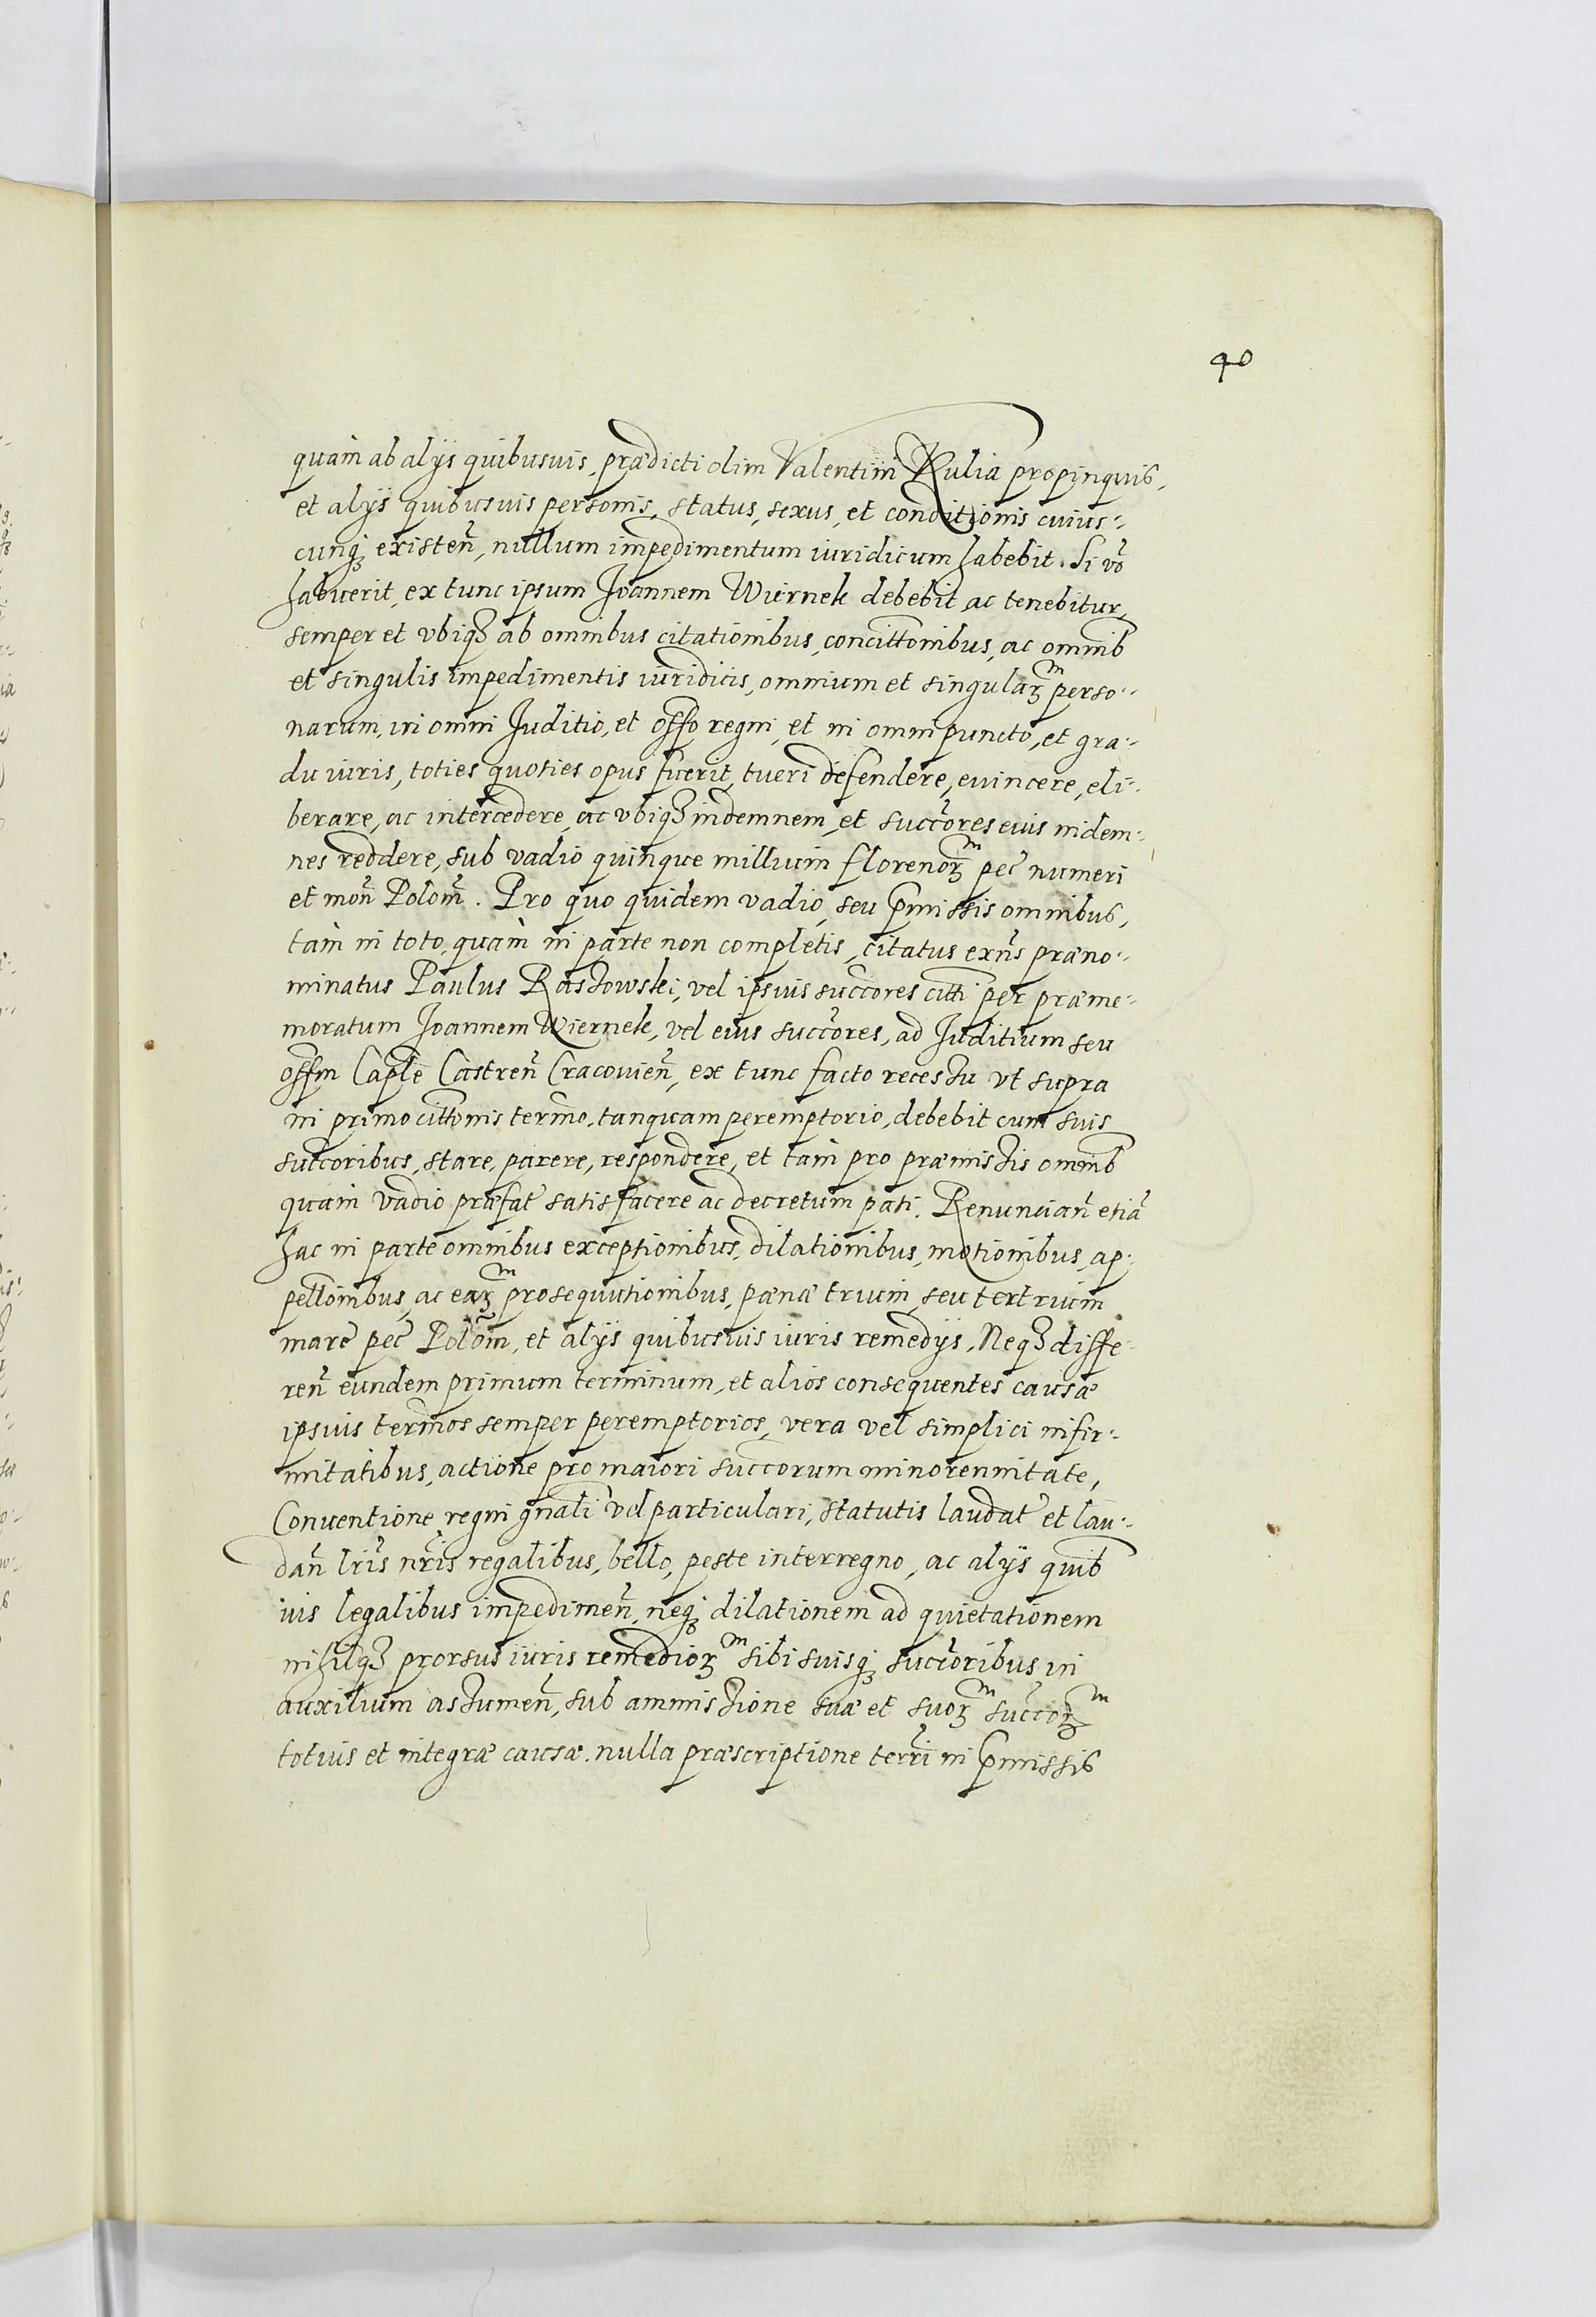 40
quam ab alÿs quibusuis, prædicti olim Valentini Rulia propinquis,
et alÿs quibusuis personis, status, sexus, et conditionis cuius-
cunq₃ existeñ, nullum impedimentum iuridicum habebit. Si vo᷑
habuerit, ex tunc ipsum Joannem Wiernek debebit ac tenebitur,
semper et vbiq₃ ab omnibus citationibus, concittõnibus, ac omnib
et singulis impedimentis iuridicis, omnium et singulaꝝᵐ perso-
narum, in omni Juditio, et offõ regni, et in omni puncto, et gra-
du iuris, toties quoties opus fuerit, tueri defendere, euincere, eli-
berare, ac intercedere, ac vbiq₃ indemnem, et succo᷑res eius indem-
nes reddere, sub vadio quinque millium florenoꝝᵐ pec᷑ numeri
et moñ Poloñ. Pro quo quidem vadio, seu p̃missis omnibus,
tam in toto, quam in parte non completis, citatus exñs præno-
minatus Paulus Raszowski, vel ipsius succo᷑res citti per præme-
moratum Joannem Wiernek, vel eius succo᷑res, ad Juditium seu
offm Caple Castreñ Cracouieñ, ex tunc facto recessu vt supra
in primo cittõnis termo, tanquam peremptorio, debebit cum suis
succoribus, stare, parere, respondere, et tam pro præmissis omnib
quam vadio præfat᷑ satisfacere ac decretum pati. Renunciañ etiã
hac in parte omnibus exceptionibus, dilationibus, motionibus, ap-
pellõnibus, ac eaꝝᵐ prosequutionibus, pænæ trium, seu ter trium
marc᷑ pec᷑ Polõm, et alÿs quibusuis iuris remedÿs, Neq₃ diffe-
reñ eundem primum terminum, et alios consequentes causæ
ipsius termos semper peremptorios, vera vel simplici infir-
mitatibus, actione pro maiori succorum minorennitate,
Conuentione regni gnãli vel particulari, statutis laudat᷑ et lau-
dañ lr̃is nr̃is regalibus, bello, peste interregno, ac alÿs quib
uis legalibus impedimeñ, neq₃ dilationem ad quietationem
nihilq₃ prorsus iuris remedioꝝᵐ sibi suisq₃ succo᷑ribus in
auxilium assumeñ, sub ammissione suæ et suoꝝᵐ succoꝝᵐ
totius et integræ causæ. nulla præscriptione terr̃i in p̃missis